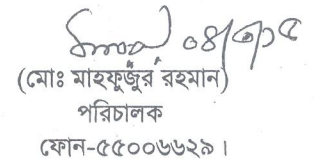 ০৪/৩/১৫
(মোঃ মাহফুজুর রহমান)
পরিচালক
ফোন-৫৫০০৬৬২৯।